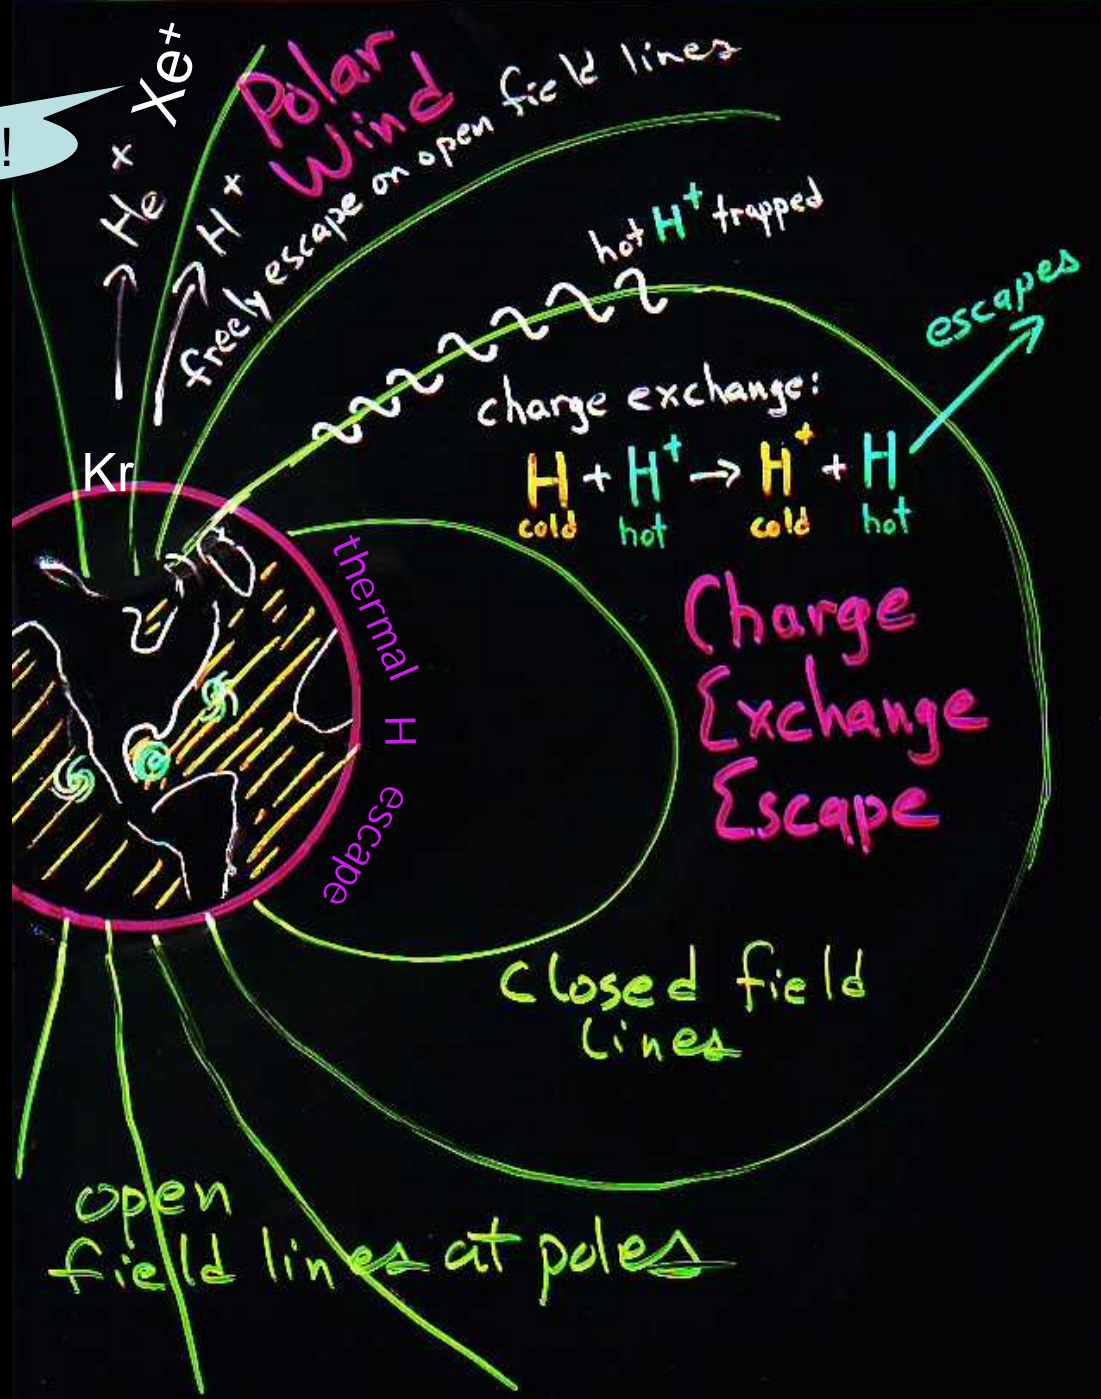 Xe+
!
He+
H+
Polar
Wind
freely escape on open field lines
hot H+ trapped
escapes
charge exchange:
H + H+ → H+ + H
cold hot cold hot
Kr
thermal H escape
Charge
Exchange
Escape
closed field
lines
open
field lines at poles